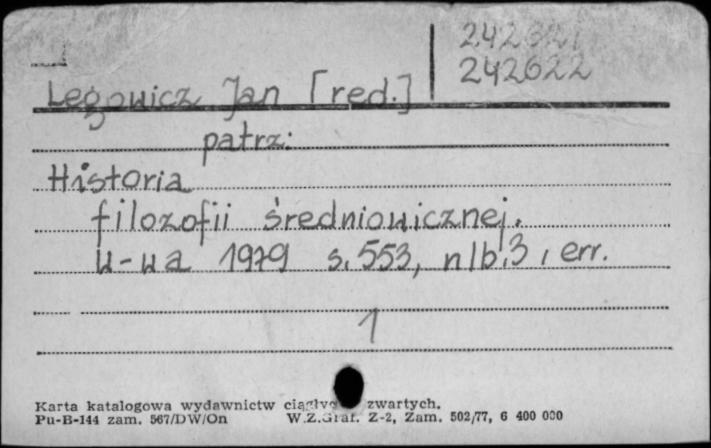 242621
242622
Legowicz Jan [red.]
patrz:
Historia
filozofii średniowicznej.
W-wa 1979 s. 553, nlb. 3, err.
1
Karta katalogowa wydawnictw zwartych.
Pu-B-144 zam. 567/DW/On W.Z.Graf. Z-2, Zam. 502/77, 6 400 000